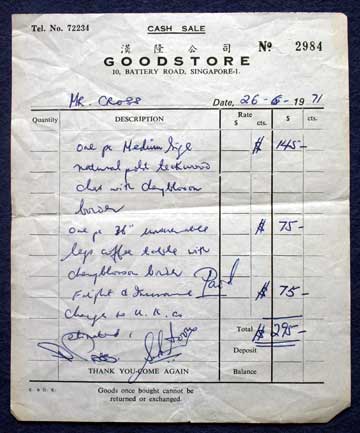 Tel. No. 72234
CASH SALE
漢隆公司
Nº 2984
GOODSTORE
10, BATTERY ROAD, SINGAPORE-1.
MR. CROSS
Date, 26-6-1971
Quantity DESCRIPTION Rate $ cts. $ cts.
one pc Medium size $ 145-
natural teakwood
with
border
one pc 36" $ 75-
legs coffee table with
border Paid
Freight & Insurance $ 75-
charge to U.K. as
Total $ 295-
Deposit
THANK YOU-COME AGAIN Balance
E. & O. E.
Goods once bought cannot be
returned or exchanged.